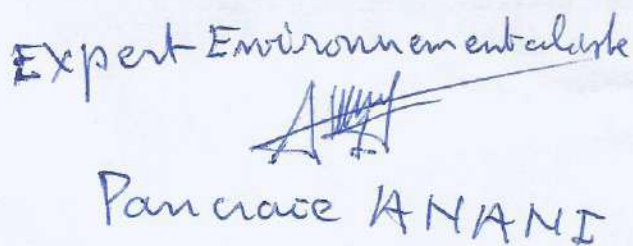 Expert Environnementaliste
Pancrace ANANI